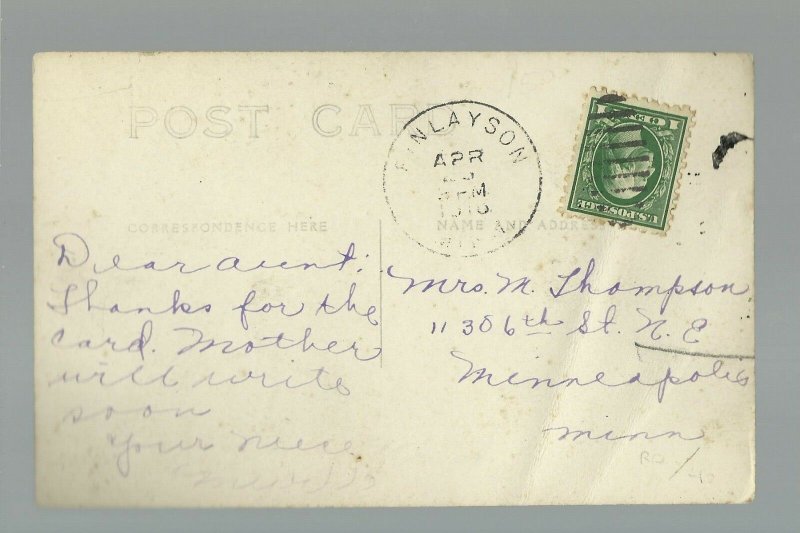 POST CARD
FINLAYSON
APR
PM
MINN
1 CENT
U.S. POSTAGE
CORRESPONDENCE HERE
NAME AND ADDRESS
Dear Aunt:
Thanks for the
card. Mother
will write
soon
Your niece
Mrs. M. Thompson
11 30 6th St. N. E
Minneapolis
Minn